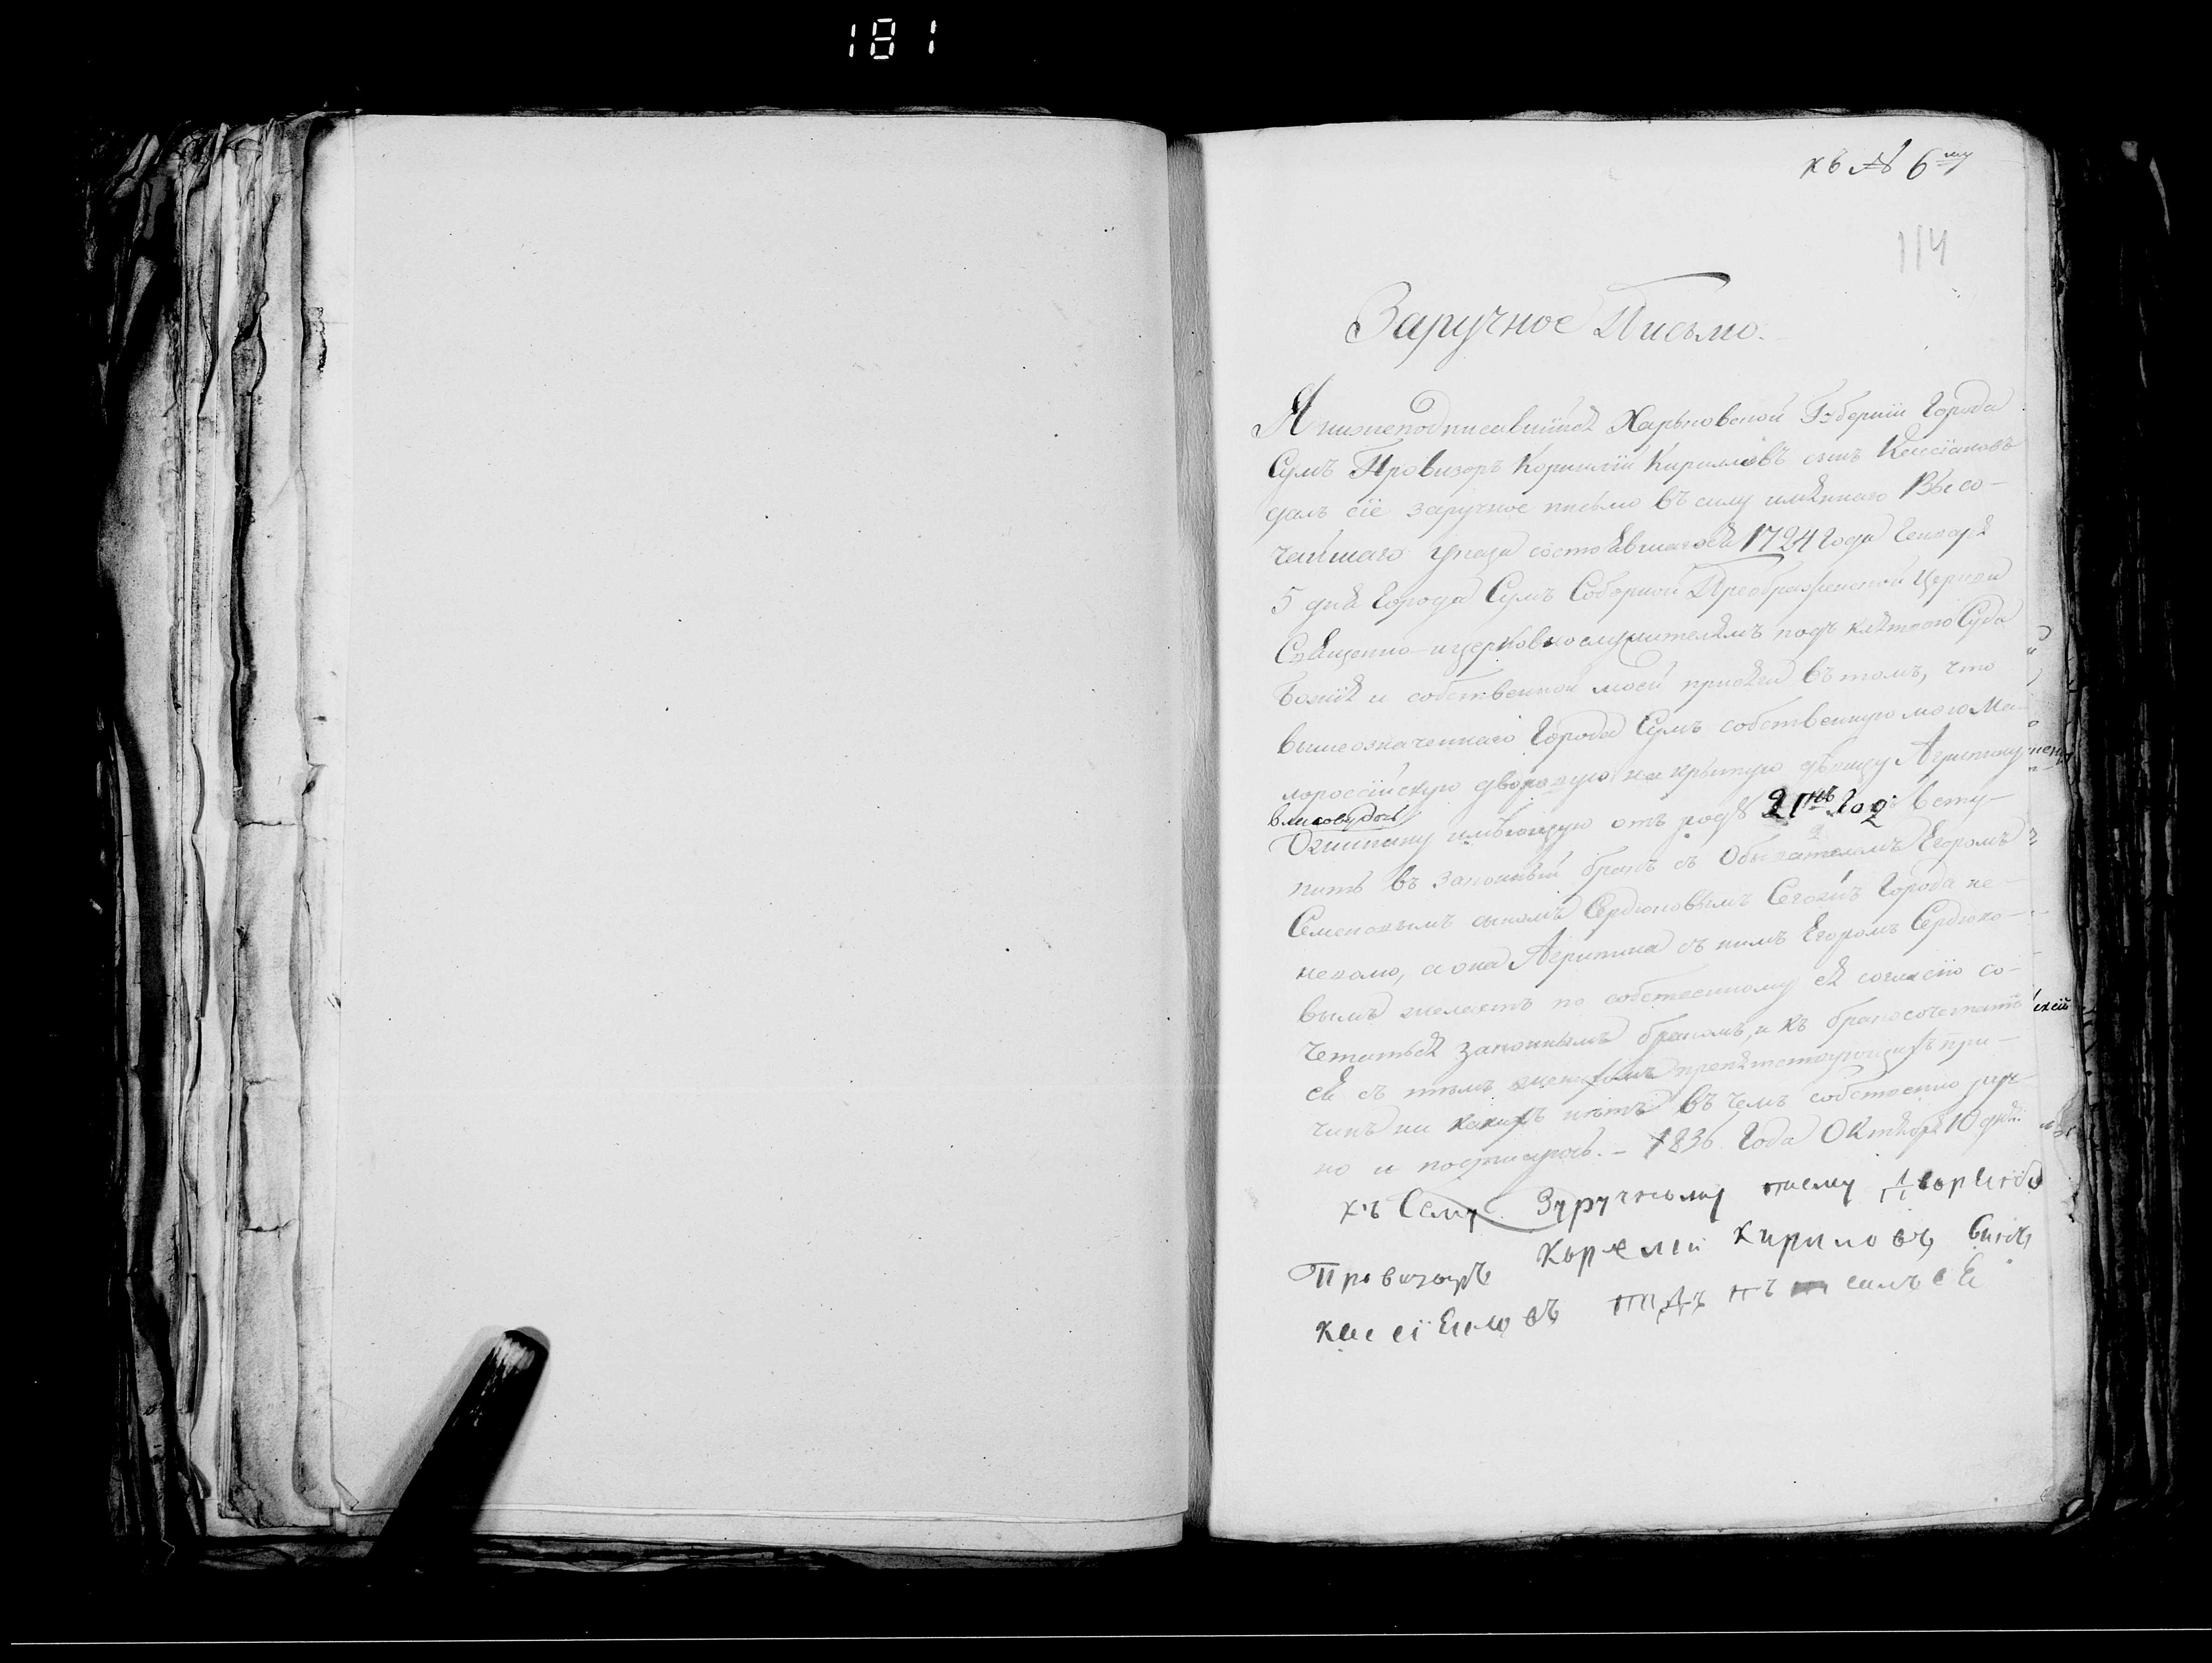 181
къ № 6му
114
Заручное Письмо.
Я нижеподписавшійся Харьковской Губерніи Города
Сумъ Провизоръ Корнилій Кириловъ сынъ Кассіановъ
далъ сіе заручное письмо въ силу имяннаго Высо-
чайшаго указа состоявшагося 1724 года Генваря
5 дня Города Сумъ Соборной Преображенской Церкви
Священно-и церковнослужителямъ подъ клятвою Суда
Божія и собственной моей присяги въ томъ, что
вышеозначеннаго Города Сумъ собственную мою Ма-
лороссійскую дворовую дѣвицу Агрипину
имѣющую отъ роду 21нъ год всту-
пить въ законный бракъ съ Обывателемъ Егоромъ
Семеновымъ сыномъ Сердюковымъ Сегожъ Города не-
неволю, а она Агрипина съ нимъ Егоромъ Сердюко-
вымъ желаетъ по собственному ея согласію со-
четаться законнымъ бракомъ, и къ бракосочетанію
ея съ тѣмъ женихомъ препятствующихъ при-
чинъ ни какихъ нѣтъ въ чемъ собственно руч-
но и подписуюсь. – 1836. Года Октября 10 дня.
къ Сему Зуручному
Провизоръ Корнелій Кириловъ Синъ
Кассіеновъ